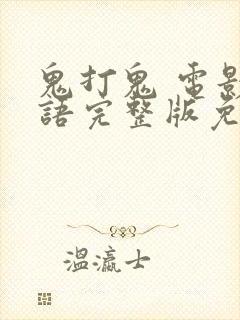 鬼打鬼 電影
語完整版免
溫瀛士